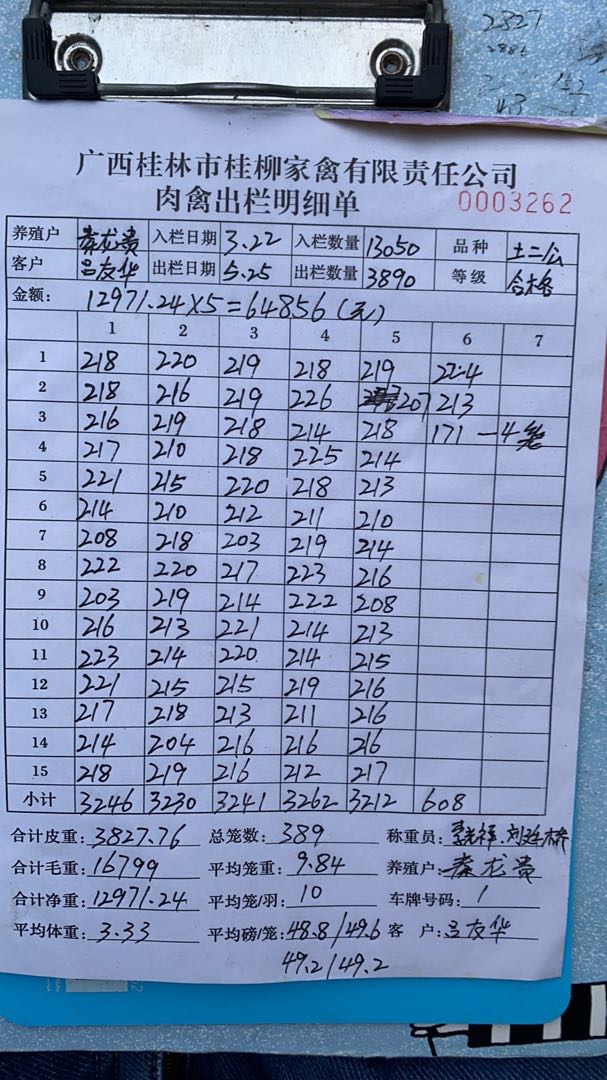 2827
广西桂林市桂柳家禽有限责任公司
肉禽出栏明细单 0003262
养殖户 秦龙贵 入栏日期 3.22 入栏数量 13050 品种 土二公
客户 吕友华 出栏日期 5.25 出栏数量 3890 等级 合格
金额: 12971.24×5=64856(元)
1 2 3 4 5 6 7
1 218 220 219 218 219 224
2 218 216 219 226 207 213
3 216 219 218 214 218 171 一4笼
4 217 210 218 225 214
5 221 215 220 218 213
6 214 210 212 211 210
7 208 218 203 219 214
8 222 220 217 223 216
9 203 219 214 222 208
10 216 213 221 214 213
11 223 214 220 214 215
12 221 215 215 219 216
13 217 218 213 211 216
14 214 204 216 216 216
15 218 219 216 212 217
小计 3246 3230 3241 3262 3212 608
合计皮重: 3827.76 总笼数: 389 称重员:
合计毛重: 16799 平均笼重: 9.84 养殖户: 秦龙贵
合计净重: 12971.24 平均笼/羽: 10 车牌号码: 1
平均体重: 3.33 平均磅/笼: 48.8/49.6 客 户: 吕友华
49.2/49.2